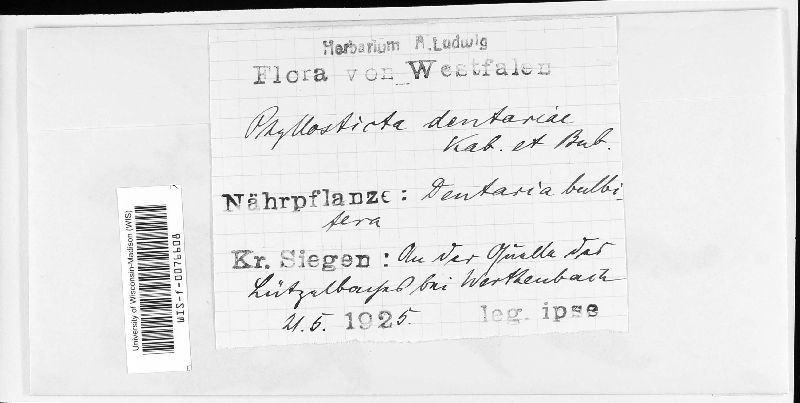 Herbarium A. Ludwig
Flora von Westfalen
Phyllosticta dentariae
Kab. et Bub.
Nährpflanze: Dentaria bulbi-
fera
Kr. Siegen: An der Quelle des
Lützelbaches bei Werthenbach
21.5. 1925. leg. ipse
University of Wisconsin-Madison (WIS)
WIS-f-0076608